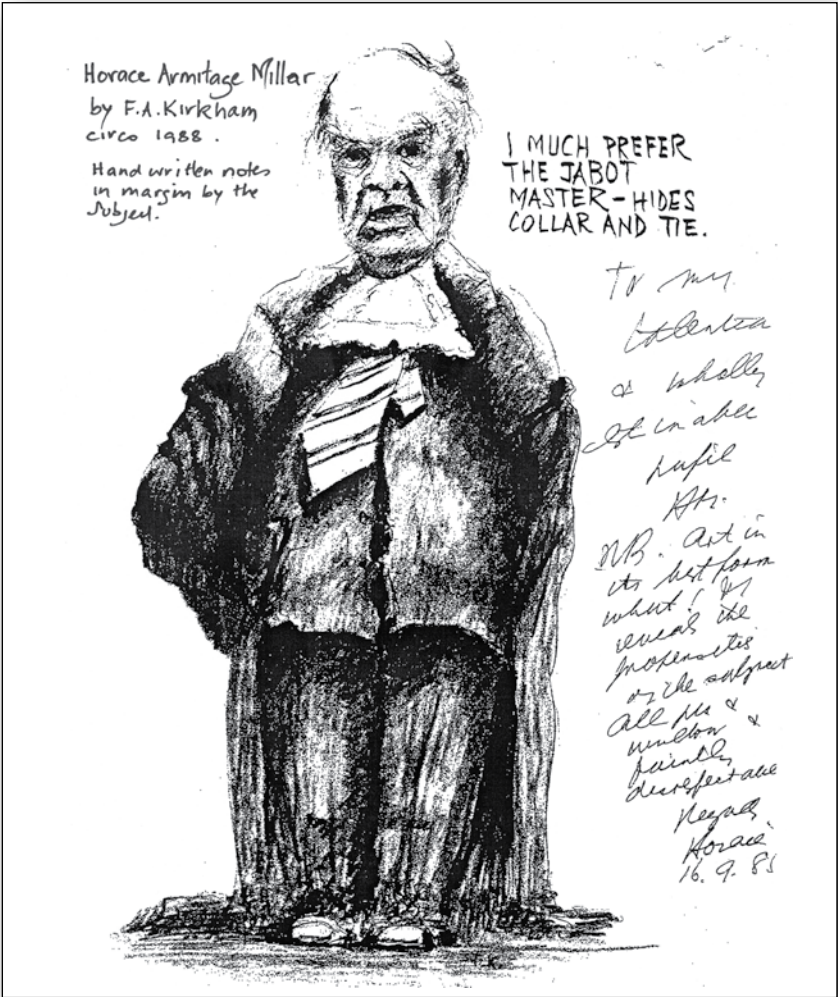 Horace Armitage Millar
by F.A. Kirkham
circo 1988.
Hand written notes
in margin by the
Subject.
I MUCH PREFER
THE JABOT
MASTER-HIDES
COLLAR AND TIE.
To my
talented
& wholly
estimable
pupil
NB. Art in
its best form
what! It
reveals the
propensities
of the subject
All &
&
faintly
disrespectable
Regards
Horace
16.9.85
F.K.